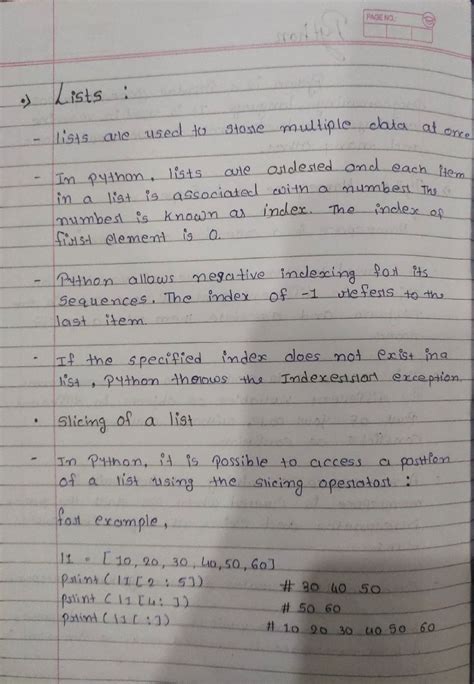 PAGE NO.:
Python
•) Lists :
- lists are used to store multiple data at once
- In python, lists are ordered and each item
in a list is associated with a number. The
number is known as index. The index of
first element is 0.
- Python allows negative indexing for its
sequences. The index of -1 refers to the
last item.
- If the specified index does not exist in a
list, Python throws the Indexerror exception.
• slicing of a list
- In Python, it is possible to access a portion
of a list using the slicing operator :
for example,
l1 = [10, 20, 30, 40, 50, 60]
print (l1 [2 : 5]) # 30 40 50
print (l1 [4: ]) # 50 60
print (l1 [:]) # 10 20 30 40 50 60